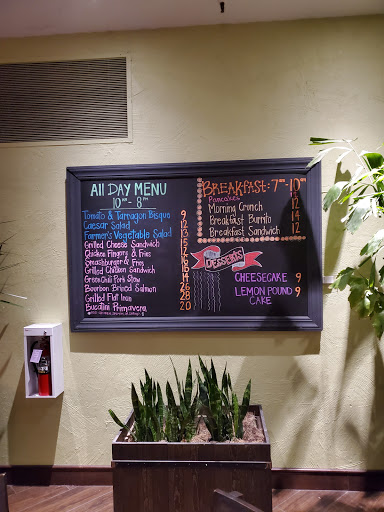 All DAY MENU
10am - 8pm
Tomato & Tarragon Bisque 9
Caesar Salad 12
Farmer's Vegetable Salad 13
Grilled Cheese Sandwich
Chicken Fingers & Fries
Smashburger & Fries
Grilled Chicken Sandwich
Green Chili Pork Stew
Bourbon Brined Salmon 26
Grilled Flat Iron 28
Bucatini Primavera 20
BREAKFAST: 7am - 10am
Pancakes
Morning Crunch 12
Breakfast Burrito 14
Breakfast Sandwich 12
DESSERTS
CHEESECAKE 9
LEMON POUND CAKE 9